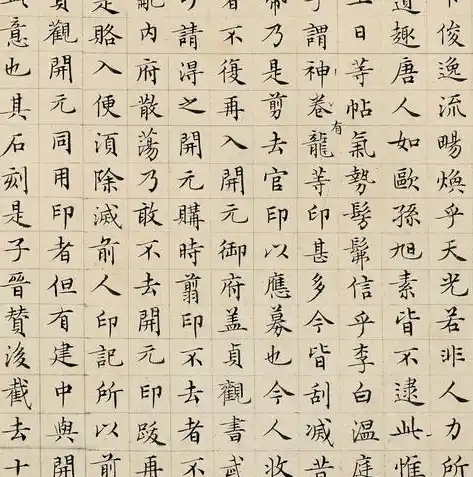 俊逸流暢煥乎天光若非人力所
趣唐人如歐孫旭素皆不逮此惟
日等帖氣勢髣髴信乎李白溫庭
謂神卷有龍等印甚多今皆刮滅昔
乃是剪去官印以應募也今人收
者不復再入開元御府蓋貞觀書武
請淂之開元購時翦印不去者不
亂内府散蕩乃敢不去開元印跋再
是賂入便湏除滅前人印記所以前
貞觀開元同用印者但有建中與開
意也其石刻是子晉賛後截去十